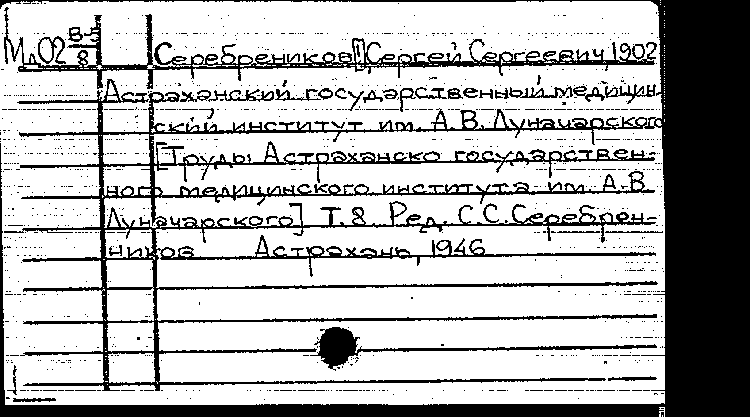 Мд02 В-5/8 Серебреников[!], Сергей Сергеевич, 1902
Астраханский государственный медицин-
ский институт им. А.В. Луначарского
[Труды Астраханско государствен-
ного медицинского института им. А.В.
Луначарского] Т.8 Ред. С.С. Серебрен-
ников Астрахань, 1946